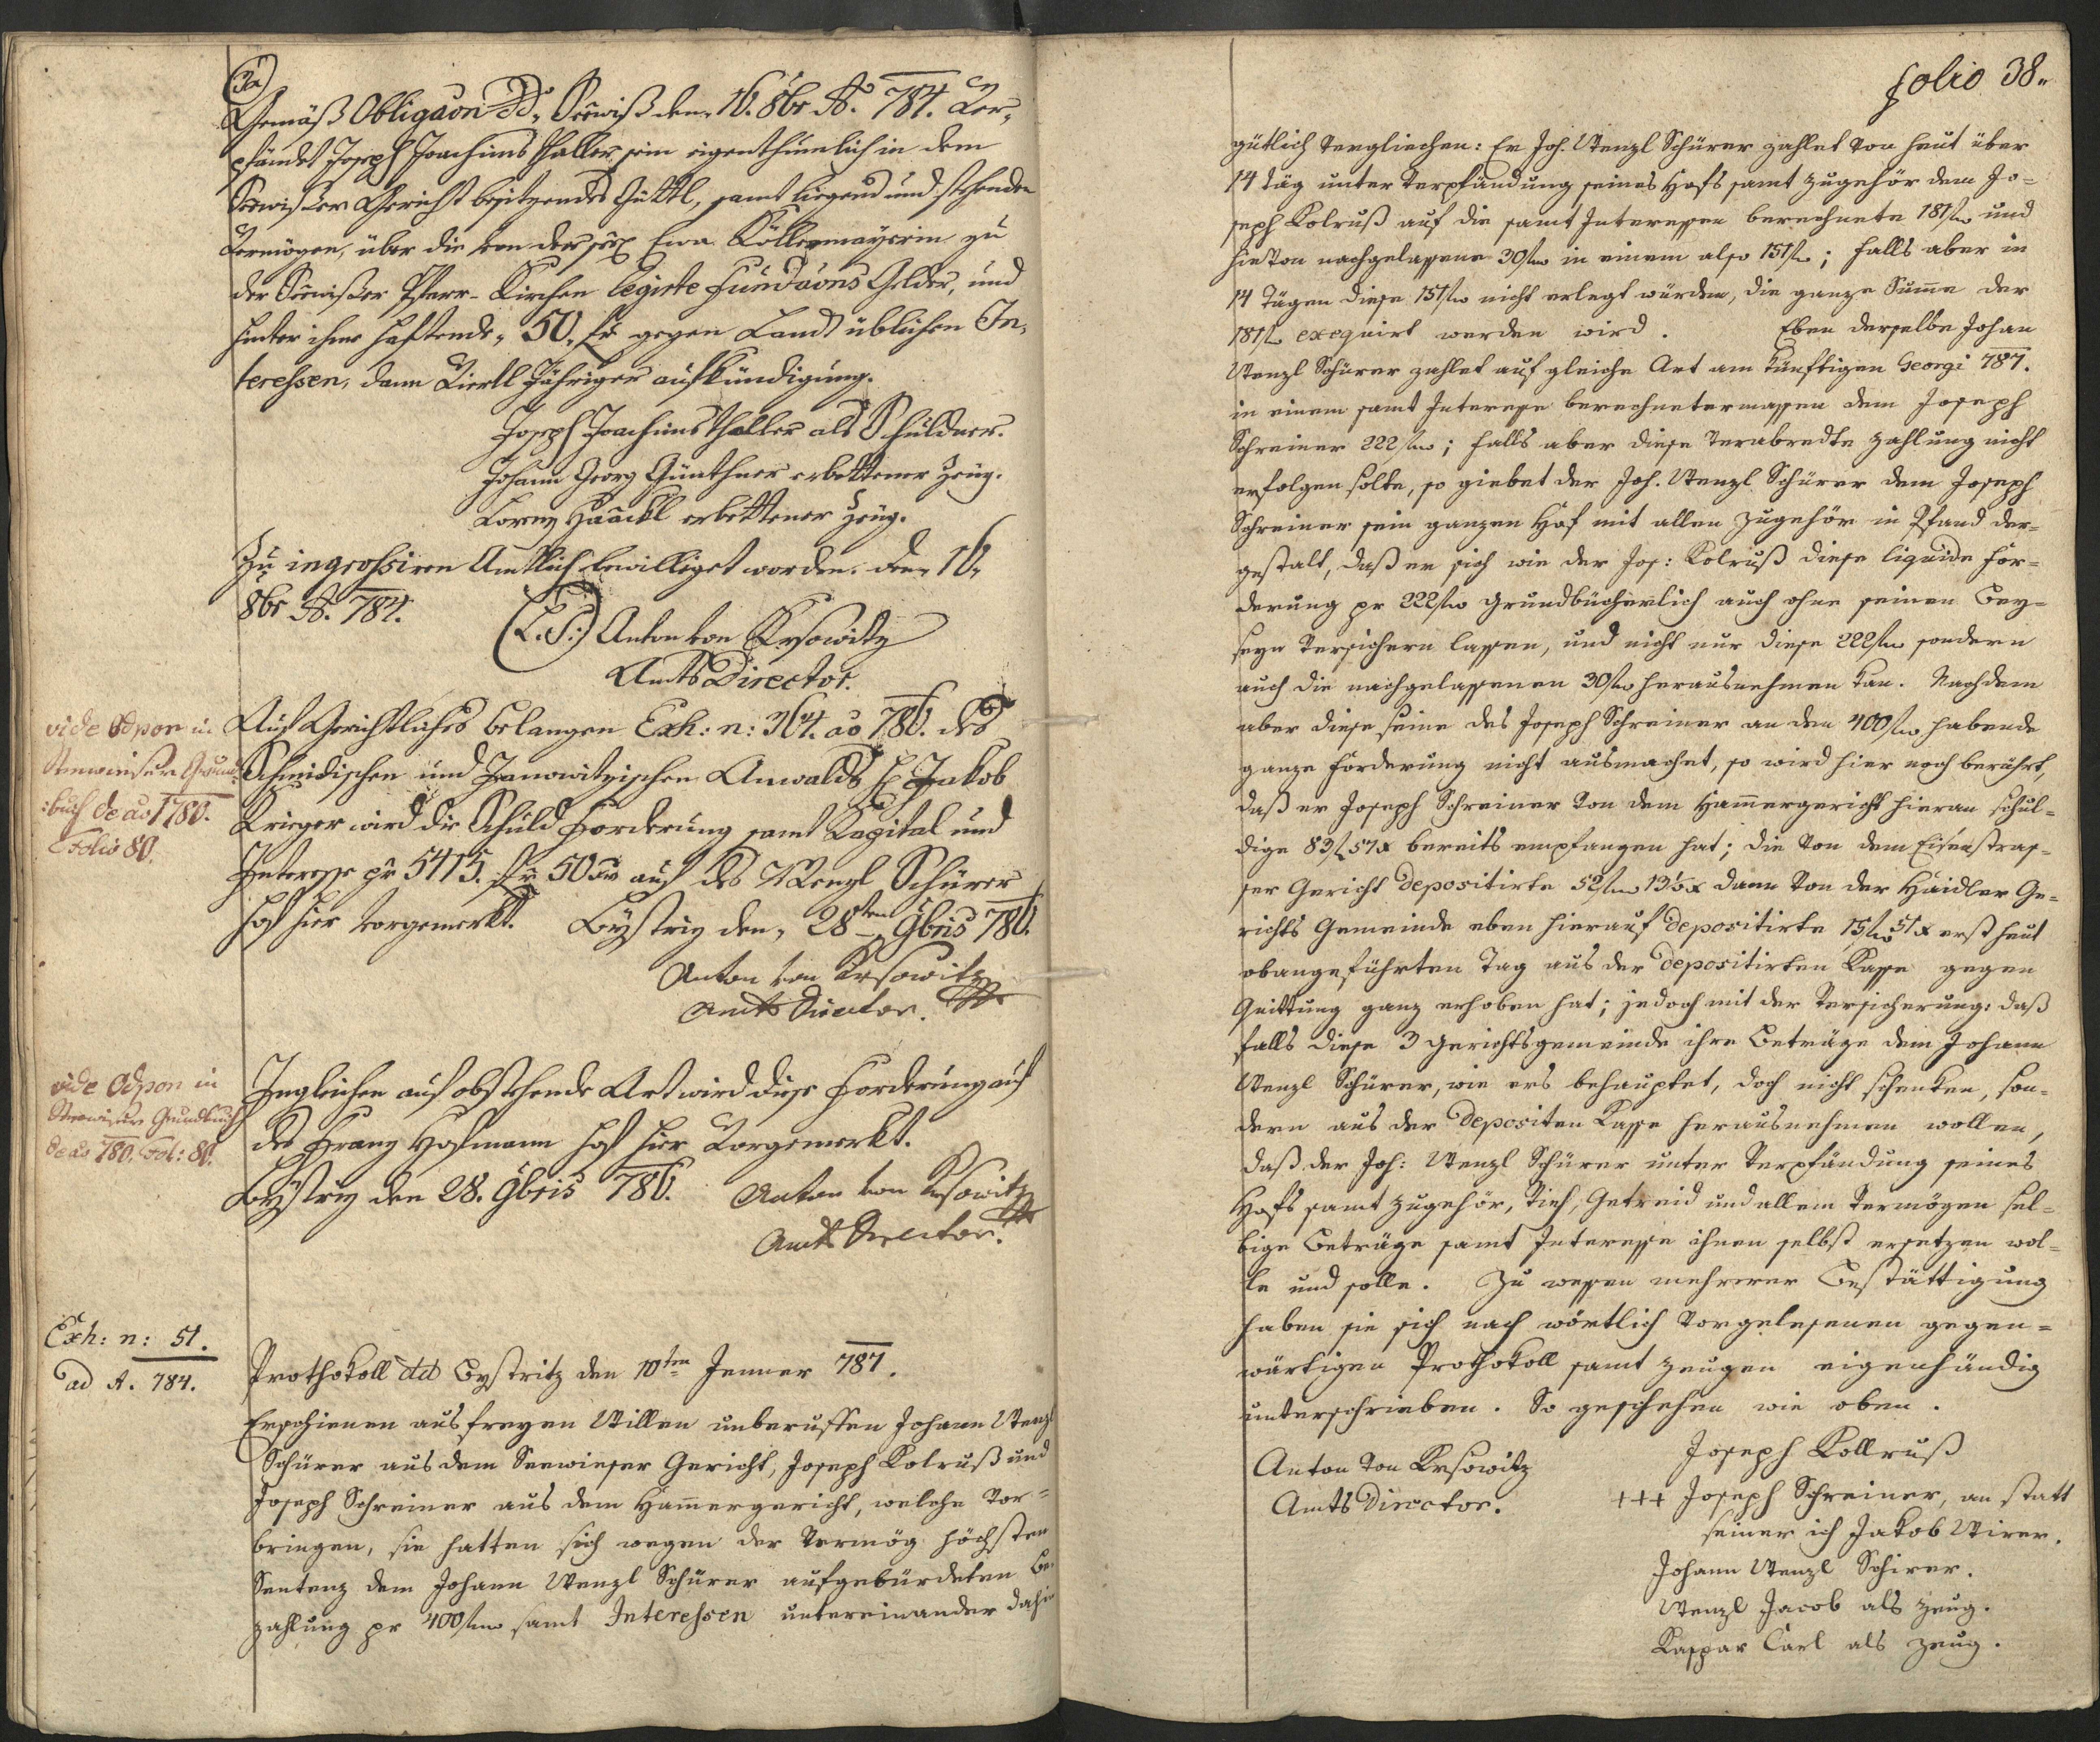 Gemäß Obligaōn dd. Seewiß den 16. 8br A. 784. Ver-
pfändet Joseph Joachimsthaller sein eigenthümlich in dem
Seewisser Gericht besitzendes Güttl, samt liegend und stehenden
Vermögen, über die von der Ewa Köllermayerin zu
der Seewisser Pfarr-Kirchen legirte Fundaōns Gelder, und
hinter ihme haftende 50 fr gegen Landt üblichen In-
teressen, dann Viertl Jähriger aufkündigung.
Joseph Joachimsthaller als Schuldner.
Johann Georg Günthner erbettener Zeüg.
Lorenz Haackl erbettener Zeüg.
Zu ingrossiren Amtlich bewilliget worden. den 16.
8br A. 784. (L.S.) Anton von Krsowitz
Amts Director.
vide Odpon in
Seewieser Grund
buch de ao 1780.
Folio 80.
Auf Gerichtliches belangen Exh: n: 364. ao 786. des
Schmidischen und Janowitzischen Anwalds H. Jakob
Krieger wird die Schuld Forderung samt Kapital und
Interesse pr 5415 fr 50 xr auf des Wenzl Schürer
Hof hier vorgemerkt. Bystriz den 28ten 9bris 786.
Anton von Krsowitz
Amts Director.
vide Odpon in
Seewieser Grundbuch
de ao 780. Fol: 80.
Ingleichen auf obstehende Art wird diese Forderung auf
des Franz Hofmann Hof hier Vorgemerkt.
Bystriz den 28. 9bris 786. Anton von Krsowitz
Amts Director.
Exh: n: 51.
ad A. 784.
Prothokoll dd Bystritz den 10ten Jenner 787.
Erschienen aus freyen Willen unberuffen Johann Wenzl
Schürer aus dem Seewieser Gericht, Joseph Kolruß und
Joseph Schreiner aus dem Hammergericht, welche vor-
bringen, sie hatten sich wegen der Vermög höchsten
Sentenz dem Johann Wenzl Schürer aufgebürdeten Be-
zahlung pr 400 fr samt Interessen untereinander dahin
folio 38.
gütlich vergliechen: Er Joh. Wenzl Schürer zahlet von heut über
14 Täg unter Verpfändung seines Hofs samt Zugehör dem Jo-
seph Kolruß auf die samt Interessen berechnete 181 fr und
hievon nachgelassene 30 fr in einem also 151 fr; falls aber in
14 Tägen diese 151 fr nicht erlegt würden, die ganze Summe der
181 fr exequirt werden wird. Eben derselbe Johan
Wenzl Schürer zahlet auf gleiche Art am künftigen Georgi 787.
in einem samt Interesse berechnetermassen dem Joseph
Schreiner 222 fr; falls aber diese verabredte Zahlung nicht
erfolgen solte, so giebet der Joh. Wenzl Schürer dem Joseph
Schreiner sein ganzen Hof mit allen Zugehör in Pfand der-
gestalt, daß er sich wie der Jos: Kolruß diese liquide For-
derung pr 222 fr Grundbücherlich auch ohne seinen Bey-
seyn Versichern lassen, und nicht nur diese 222 fr sondern
auch die nachgelassenen 30 fr herausnehmen kan. Nachdem
aber diese seine des Joseph Schreiner an den 400 fr habende
ganze Forderung nicht ausmachet, so wird hier noch berührt,
daß er Joseph Schreiner von dem Hammergericht hieran schul-
dige 83 f 57 x bereits empfangen hat; die von dem Eisenstras-
ser Gericht depositirte 52 fr 13½ x dann von der Haidler Ge-
richts Gemeinde eben hierauf depositirte 15 fr 51 x erst heut
obangeführten Tag aus der depositirten Kasse gegen
Quittung ganz erhoben hat; jedoch mit der Versicherung: daß
falls diese 3 Gerichtsgemeinde ihre Beträge dem Johann
Wenzl Schürer, wie ers behauptet, doch nicht schenken, son-
dern aus der Depositen Kasse herausnehmen wollen,
daß der Joh: Wenzl Schürer unter Verpfändung seines
Hofs samt Zugehör, Vieh, Getreid und allem Vermögen sel-
bige Beträge samt Interesse ihnen selbst ersetzen wol-
le und solle. Zu wessen mehrerer Bestättigung
haben sie sich nach wörtlich vorgelesenen gegen-
wärtigen Prothokoll samt Zeugen eigenhändig
unterschrieben. So geschehen wie oben.
Anton von Krsowitz
Amts Director.
Joseph Kollruß
+++ Joseph Schreiner, an statt
seiner ich Jakob Wirer.
Johann Wenzl Schirer.
Wenzl Jacob als Zeug.
Kaspar Carl als Zeug.